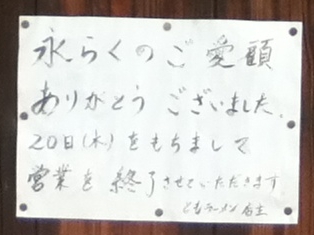 永らくのご愛顧
ありがとうございました。
20日(木)をもちまして
営業を終了させていただきます
ともラーメン 店主